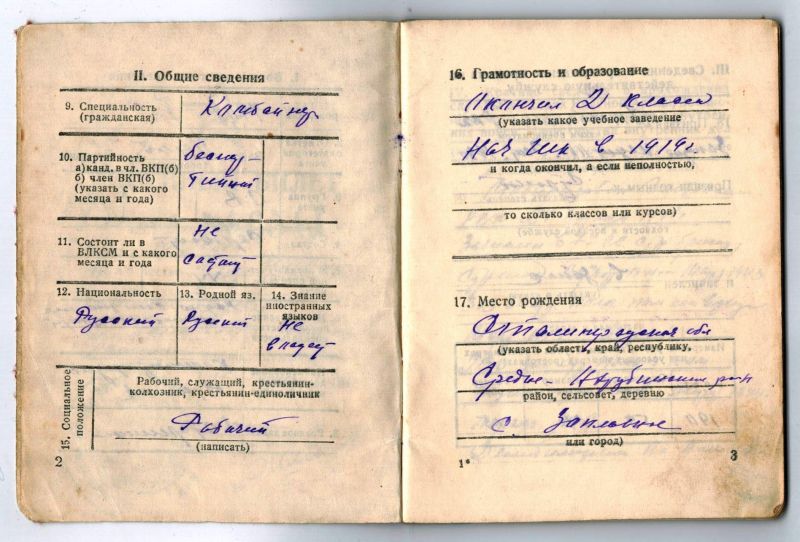 II. Общие сведения
9. Специальность
(гражданская)
Комбайнер
10. Партийность
а) канд. в чл. ВКП(б)
б) член ВКП(б)
(указать с какого
месяца и года)
беспар-
тийный
11. Состоит ли в
ВЛКСМ и с какого
месяца и года
не
состоит
12. Национальность
Русский
13. Родной яз.
Русский
14. Знание
иностранных
языков
не
владеет
15. Социальное
положение
Рабочий, служащий, крестьянин-
колхозник, крестьянин-единоличник
Рабочий
(написать)
2
16. Грамотность и образование
Окончил 2 класса
(указать какое учебное заведение
нач шк в 1919г
и когда окончил, а если неполностью,
то сколько классов или курсов)
17. Место рождения
Сталинградская обл
(указать область, край, республику,
Средне-Ахтубинский р-н
район, сельсовет, деревню
с. Заплавное
или город)
1*
3